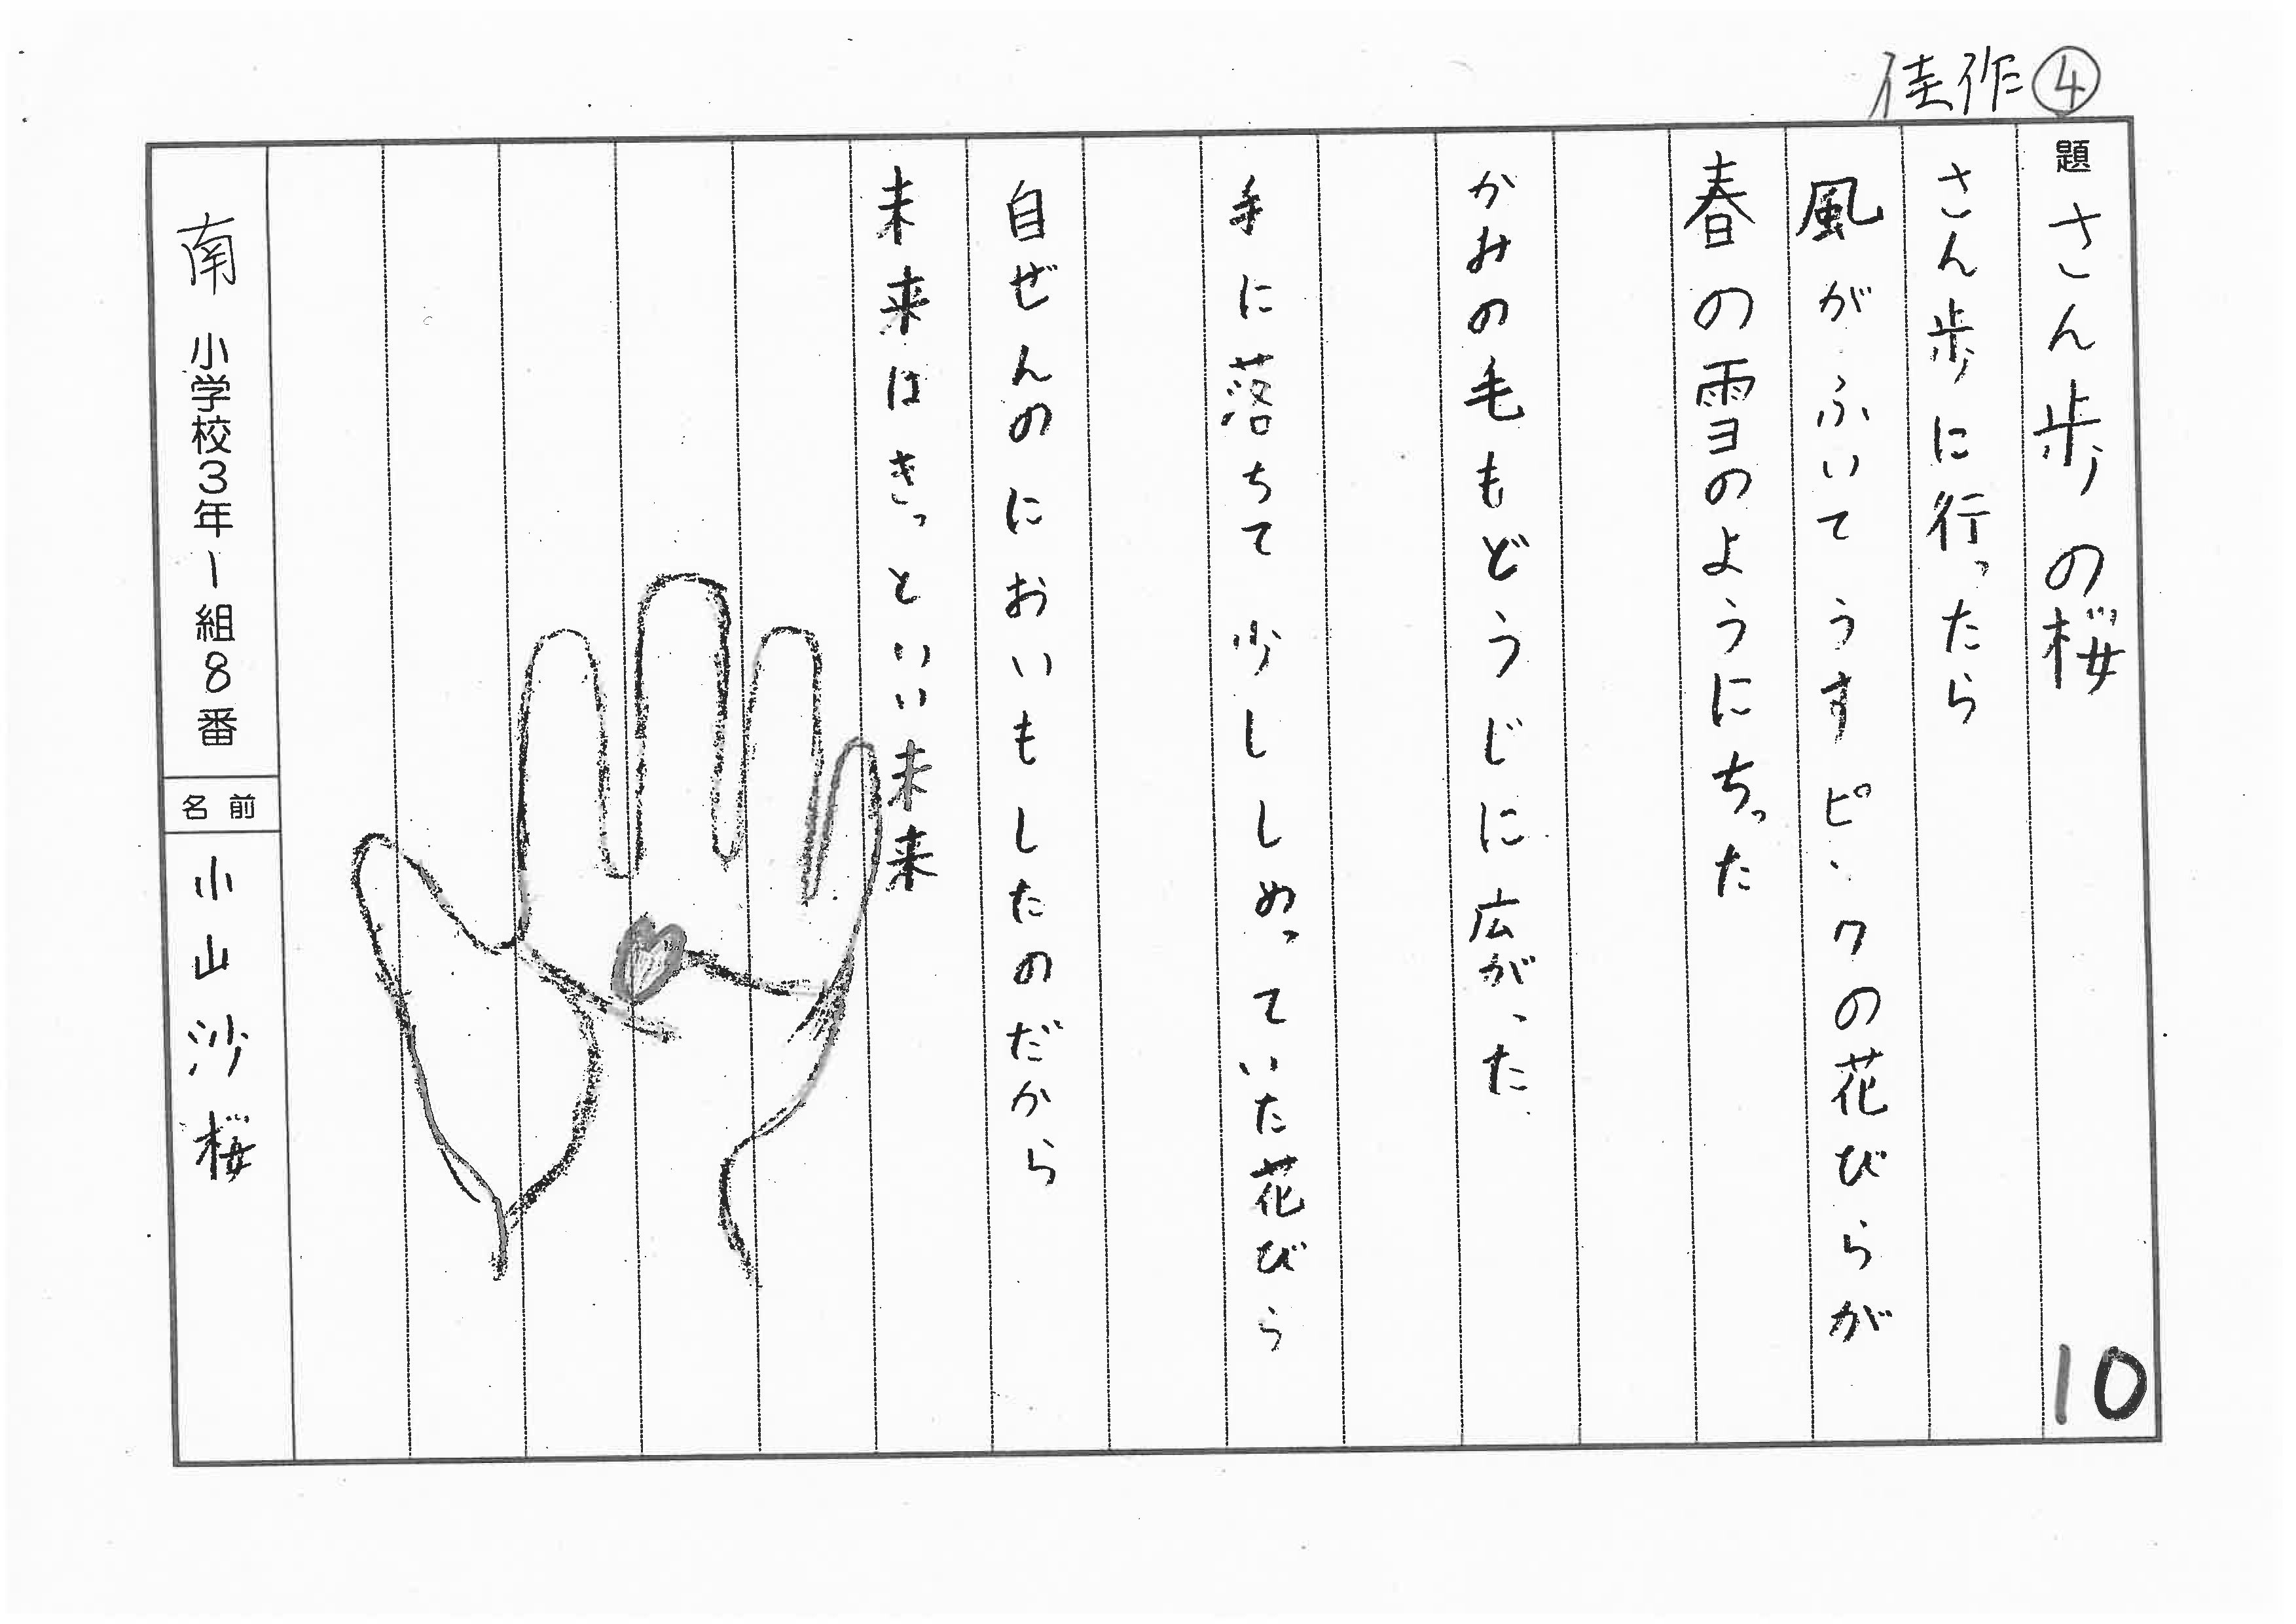 佳作④
題 さん歩の桜
10
さん歩に行ったら
風がふいてうすピンクの花びらが
春の雪のようにちった
かみの毛もどうじに広がった
手に落ちて少ししめっていた花びら
自ぜんのにおいもしたのだから
未来はきっといい未来
南小学校3年1組8番
名前 小山沙桜